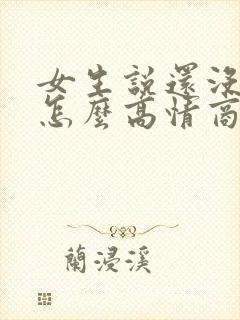 女生說還沒
怎麼高情商
蘭浸溪